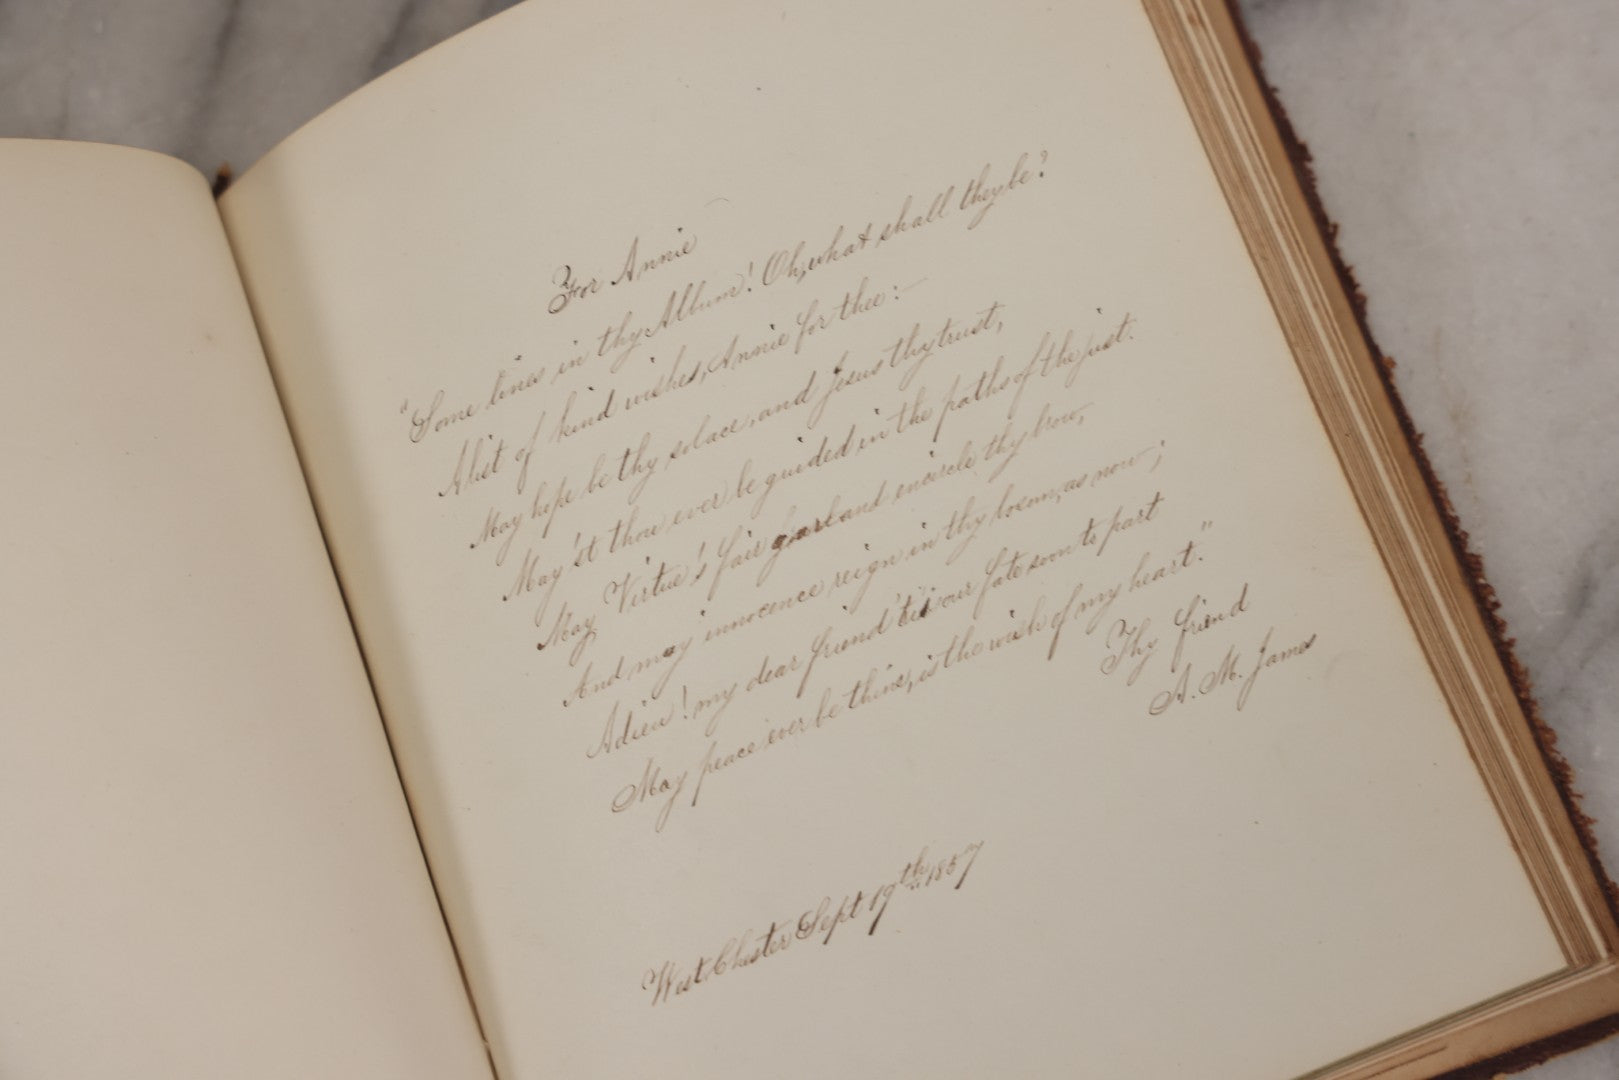 For Annie
"Some lines in thy Album! Oh, what shall they be?
A list of kind wishes, Annie for thee:—
May hope be thy solace, and Jesus thy trust,
May'st thou ever be guided in the paths of the just.
May Virtue's fair garland encircle thy brow,
And may innocence reign in thy bosom, as now;
Adieu! my dear friend 'tis our fate soon to part
May peace ever be thine, is the wish of my heart."
Thy friend
A. M. James
West Chester Sept 19th 1857